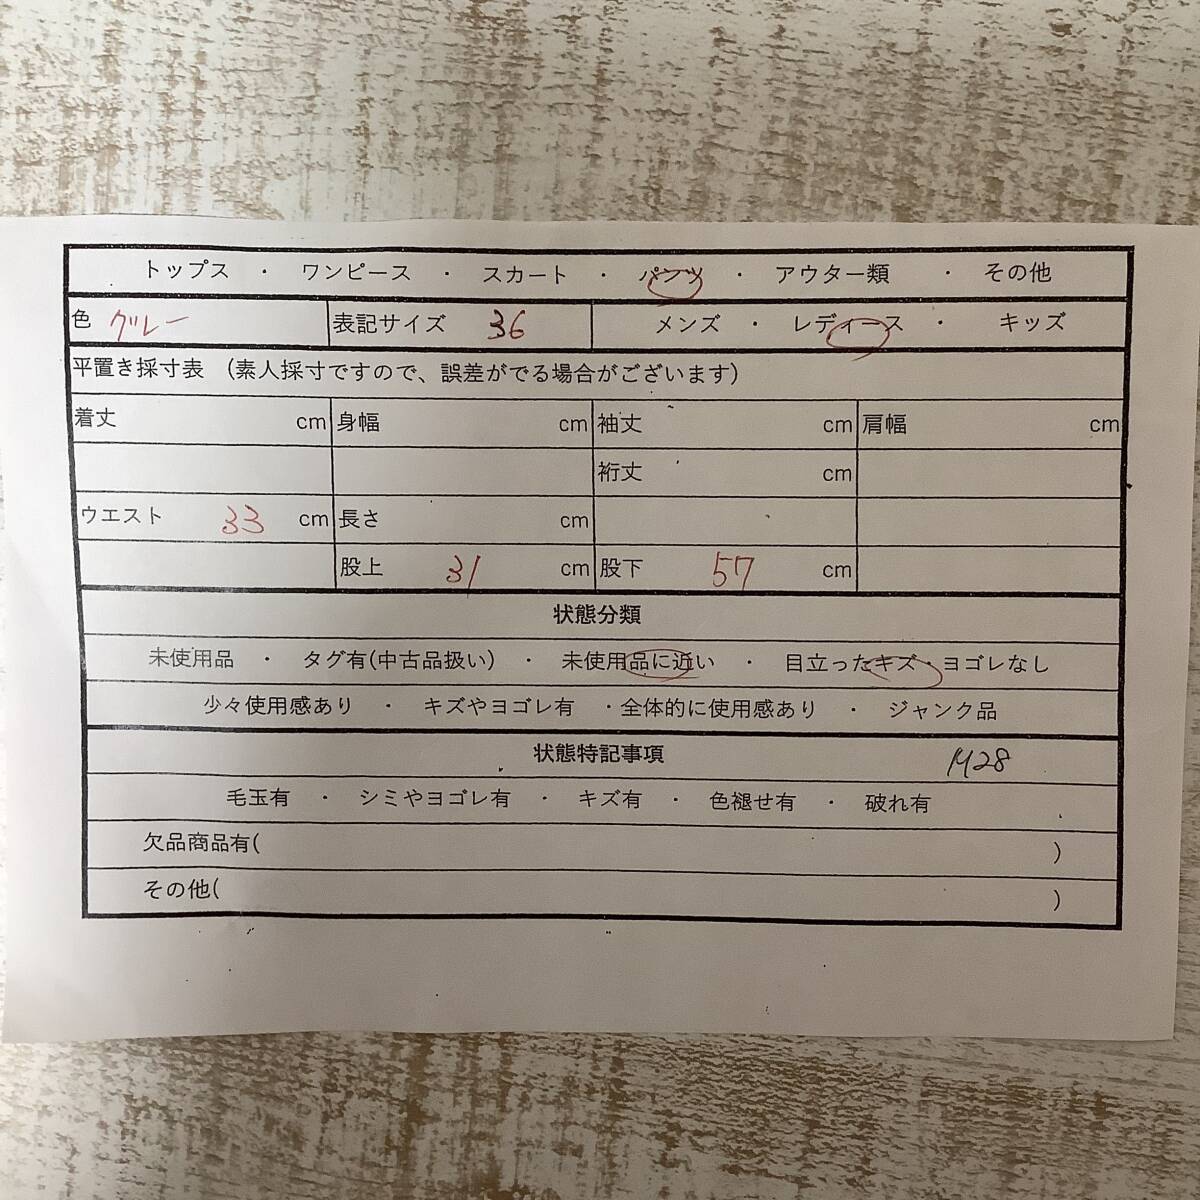 トップス ・ ワンピース ・ スカート ・ パンツ ・ アウター類 ・ その他
色 グレー 表記サイズ 36 メンズ ・ レディース ・ キッズ
平置き採寸表 (素人採寸ですので、誤差がでる場合がございます)
着丈 cm 身幅 cm 袖丈 cm 肩幅 cm
裄丈 cm
ウエスト 33 cm 長さ cm
股上 31 cm 股下 57 cm
状態分類
未使用品 ・ タグ有(中古品扱い) ・ 未使用品に近い ・ 目立ったキズ・ヨゴレなし
少々使用感あり ・ キズやヨゴレ有 ・全体的に使用感あり ・ ジャンク品
状態特記事項 M28
毛玉有 ・ シミやヨゴレ有 ・ キズ有 ・ 色褪せ有 ・ 破れ有
欠品商品有( )
その他( )